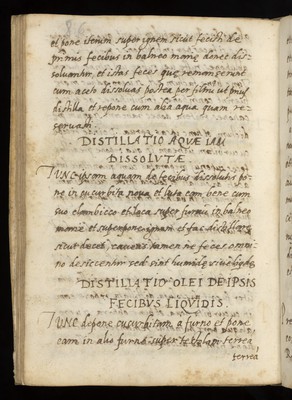 et pone iterum super ignem sicut fecisti de
primis fecibus in balneo mariæ donec dis
soluantur, et istas feces que remanserunt
cum aceto dissoluas postea per filtrum ut prius
distilla et repone cum alia aqua quam re
seruasti.
DISTILLATIO AQUE IAM
DISSOLUTÆ
TUNC ipsam aquam de fecibus dissolutis po
ne in cucurbita noua et luta eam bene cum
suo alembicco et loca super furnum in balneo
mariæ et superpone ignem et fac distillare
sicut decet, caueas tamen ne feces omni
no desiccentur sed sint humide siue liquide
DISTILLATIO OLEI DE IPSIS
FECIBUS LIQUIDIS
TUNC depone cucurbitam a furno et pone
eam in alio furno super terrea
terrea